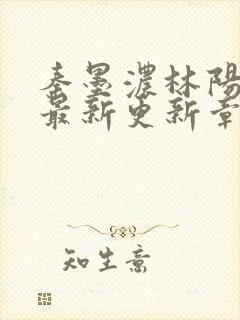 秦墨濃林陽
最新更新章
知生意